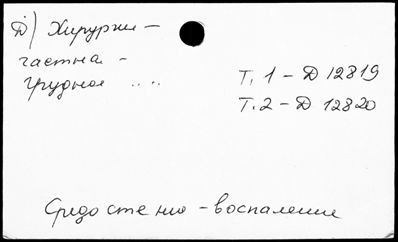 Д) Хирургия –
частная –
грудная .. ..
Т. 1 – Д 12819
Т. 2 – Д 12820
Средостение – воспаление